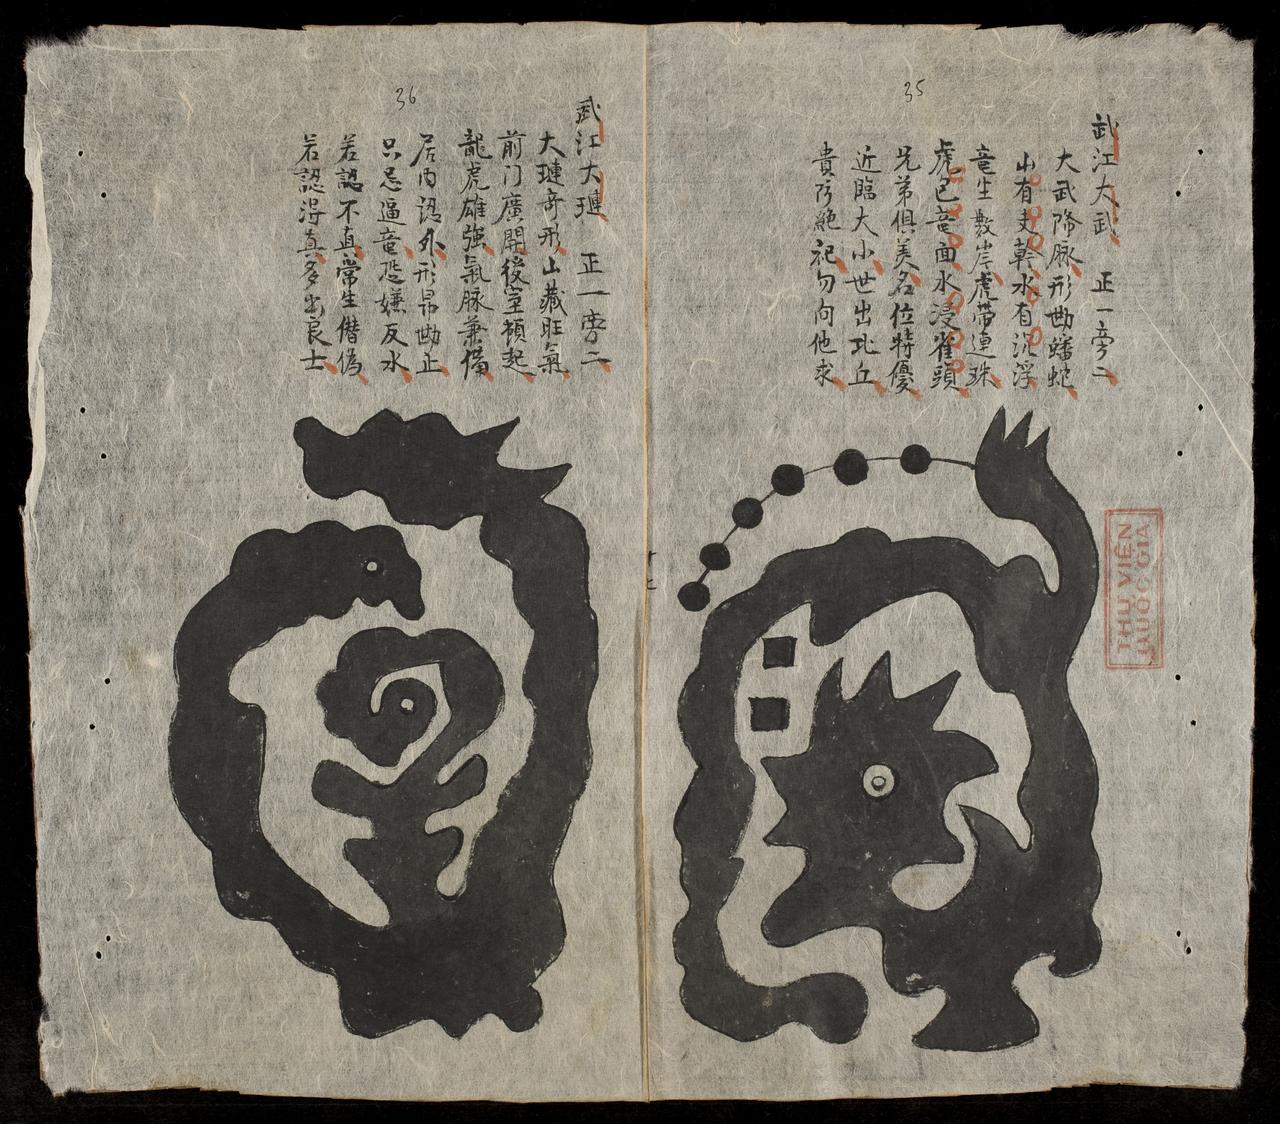 35
武江大武 正一旁二
大武降脉形勘蟠蛇
山有吏幹水有沉浮
竜生數岸虎帶連珠
虎包竜面水浸雀頭
兄弟俱美名位特優
近臨大小世出北丘
貴所絕祀勿向他求
THƯ VIỆN
QUỐC GIA
36
武江大璉 正一旁二
大璉奇形山藏旺氣
前门廣開後室頓起
龍虎雄強氣脉兼備
居内認外形昂勘正
只忌逼竜恐嫌反水
若認不真常生僭偽
若認得真多出良士
十七